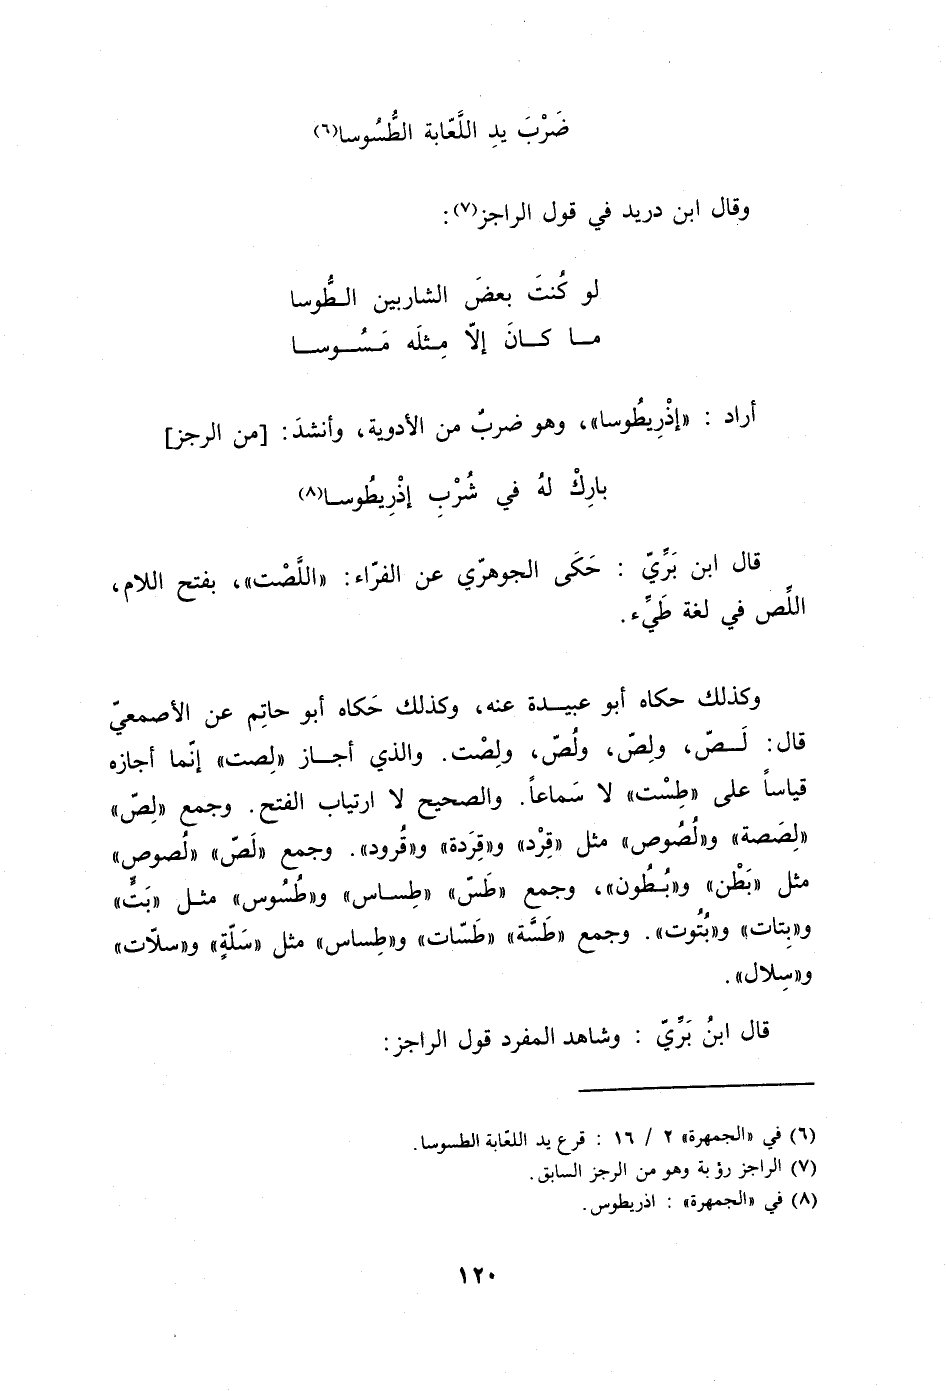 ضَرْبَ يدِ اللَّعّابة الطُّسُوسا(٦)
وقال ابن دريد في قول الراجز(٧):
لو كُنتَ بعضَ الشاربين الطُّوسا
ما كانَ إلاّ مِثلَه مَسُوسا
أراد : «إذْرِيطُوسا»، وهو ضربٌ من الأدوية، وأنشدَ: [من الرجز]
بارِكْ لهُ في شُرْبِ إذْرِيطُوسا(٨)
قال ابن بَرِّيّ : حَكَى الجوهرّي عن الفرّاء: «اللَّصْت»، بفتح اللام،
اللِّص في لغة طَيِّء.
وكذلك حكاه أبو عبيدة عنه، وكذلك حَكاه أبو حاتِم عن الأصمعيّ
قال: لَصّ، ولِصّ، ولُصّ، ولِصْت. والذي أجاز «لِصت» إنّما أجازه
قياساً على «طِسْت» لا سَماعاً. والصحيح لا ارتياب الفتح. وجمع «لِصّ»
«لِصَصة» و«لُصُوص» مثل «قِرْد» و«قِرَدة» و«قُرود». وجمع «لَصّ» «لُصوص»
مثل «بَطْن» و«بُطون»، وجمع «طَسّ» «طِساس» و«طُسُوس» مثل «بَتٍّ»
و«بِتات» و«بُتُوت». وجمع «طَسَّة» «طَسّات» و«طِساس» مثل «سَلّةٍ» و«سلاّت»
و«سِلال».
قال ابنُ بَرِّيّ : وشاهد المفرد قول الراجز:
(٦) في «الجمهرة» ٢ / ١٦ : قرع يد اللعّابة الطسوسا.
(٧) الراجز رؤبة وهو من الرجز السابق.
(٨) في «الجمهرة» : اذريطوس.
١٢٠